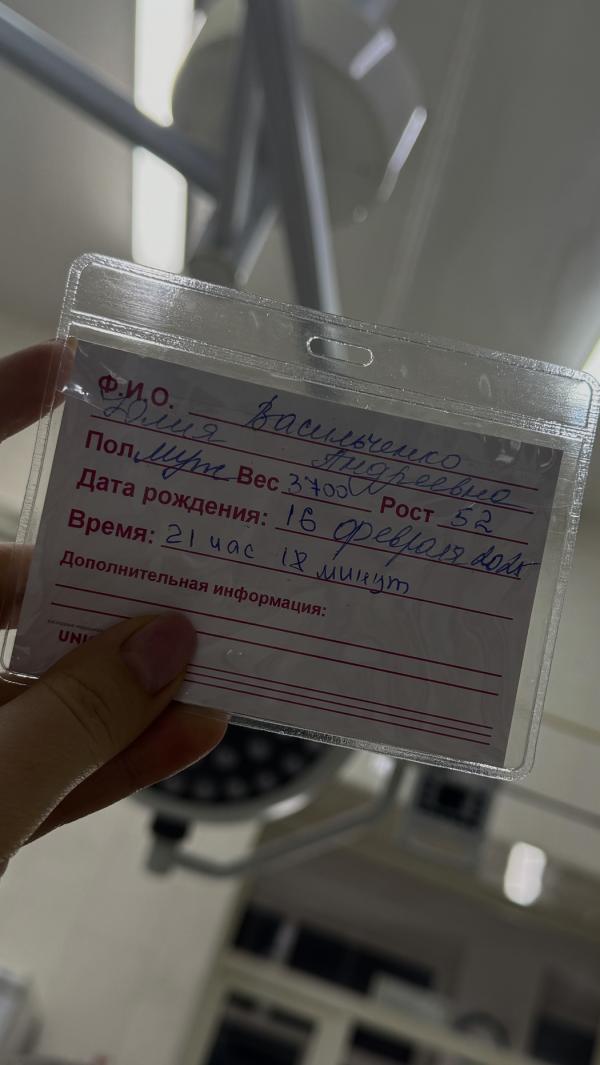 Ф.И.О. Васильченко
Юлия Андреевна
Пол муж Вес 3700 Рост 52
Дата рождения: 16 февраля
Время: 21 час 18 минут
Дополнительная информация: